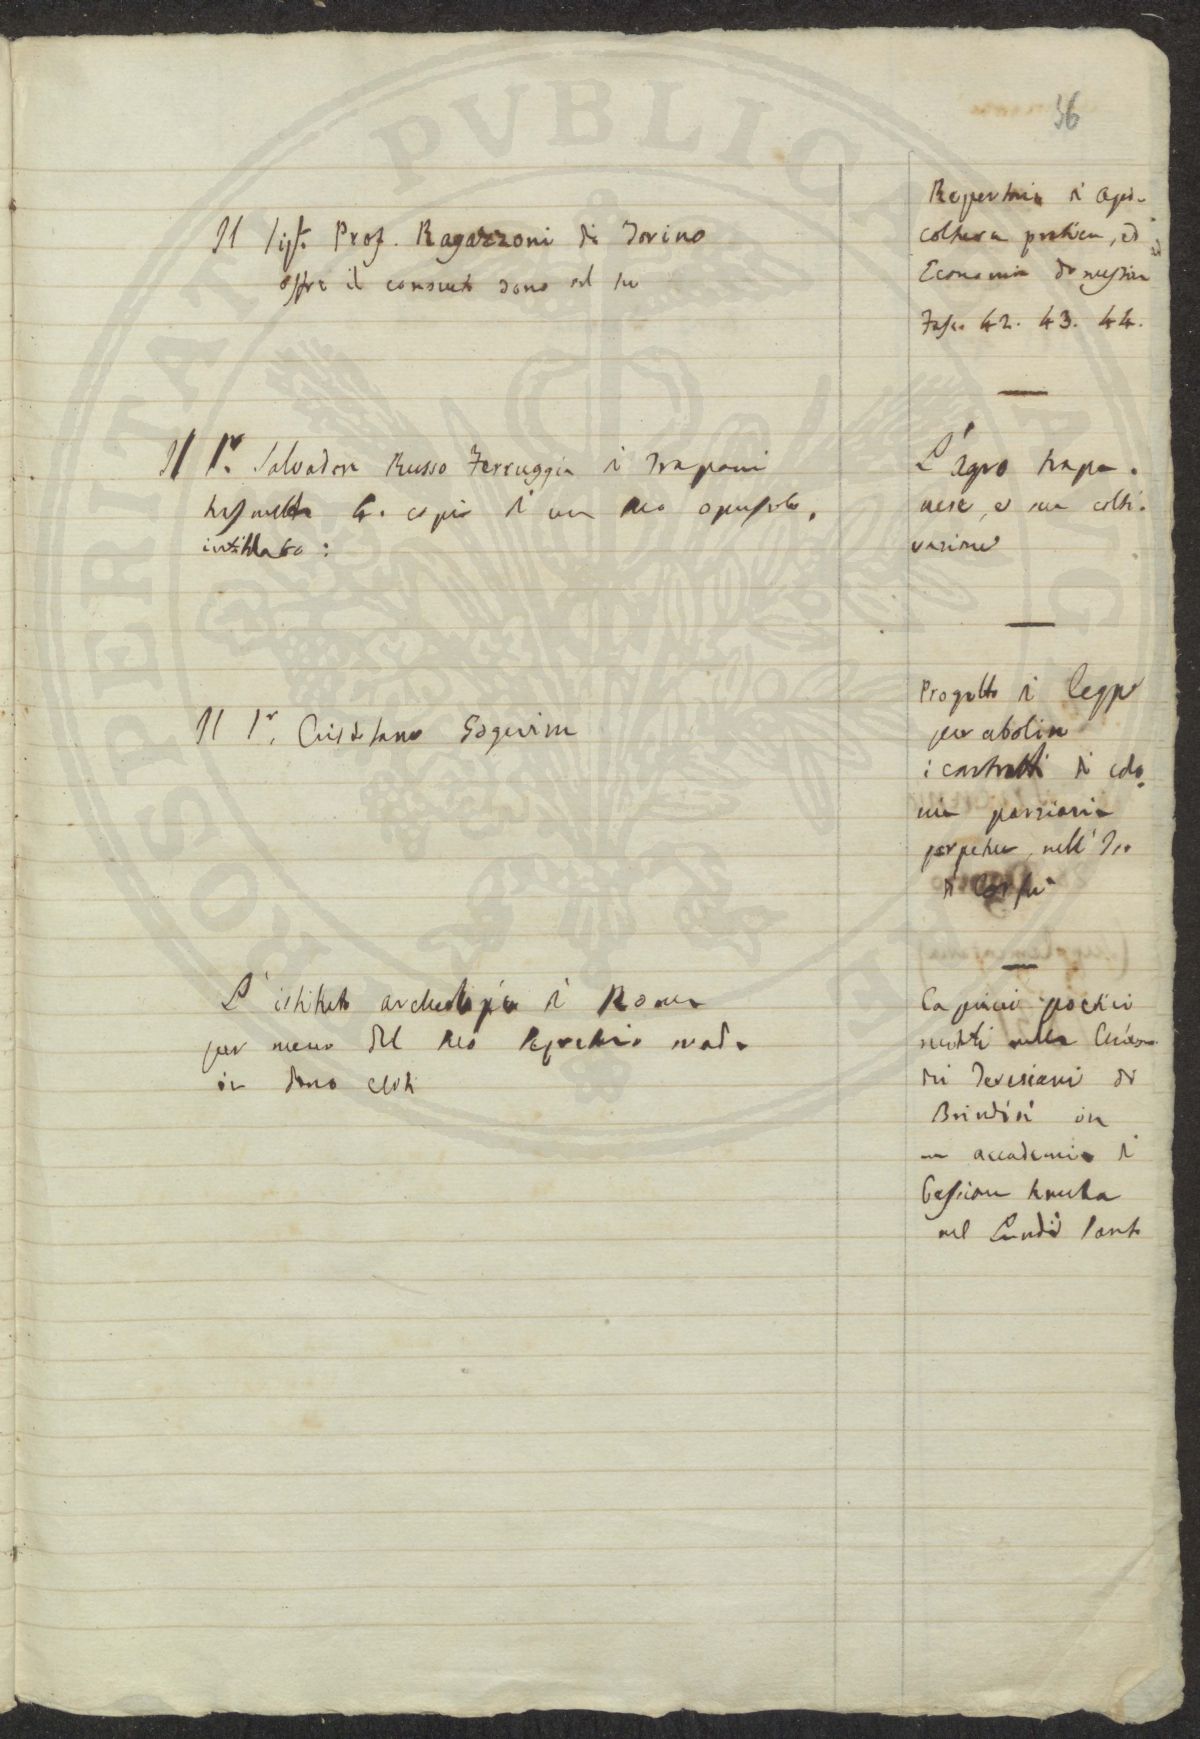 36
Il Sigr. Prof. Ragazzoni di Torino
offre il consueto dono del suo
Repertorio di agri-
coltura pratica, ed
Economia domestica
Fasc. 42. 43. 44.
Il Sr. Salvadore Russo Ferruggia di Trapani
trasmette 4. copie di un suo opuscolo,
intitolato:
L'agro trapa-
nese, e sua colti-
vazione
Il Sr. Cristofano
Progetto di legge
per abolire
i contratti di colo-
nia parziaria
perpetua, nell'
di Corfù
L'istituto archeologico di Roma
per mezzo del suo Segretario manda
in dono
poetici
nella Chiesa
dei Teresiani di
Brindisi in
un accademia di
Passione tenuta
nel Lundì Santo
PVBLICA
PROSPERITATI